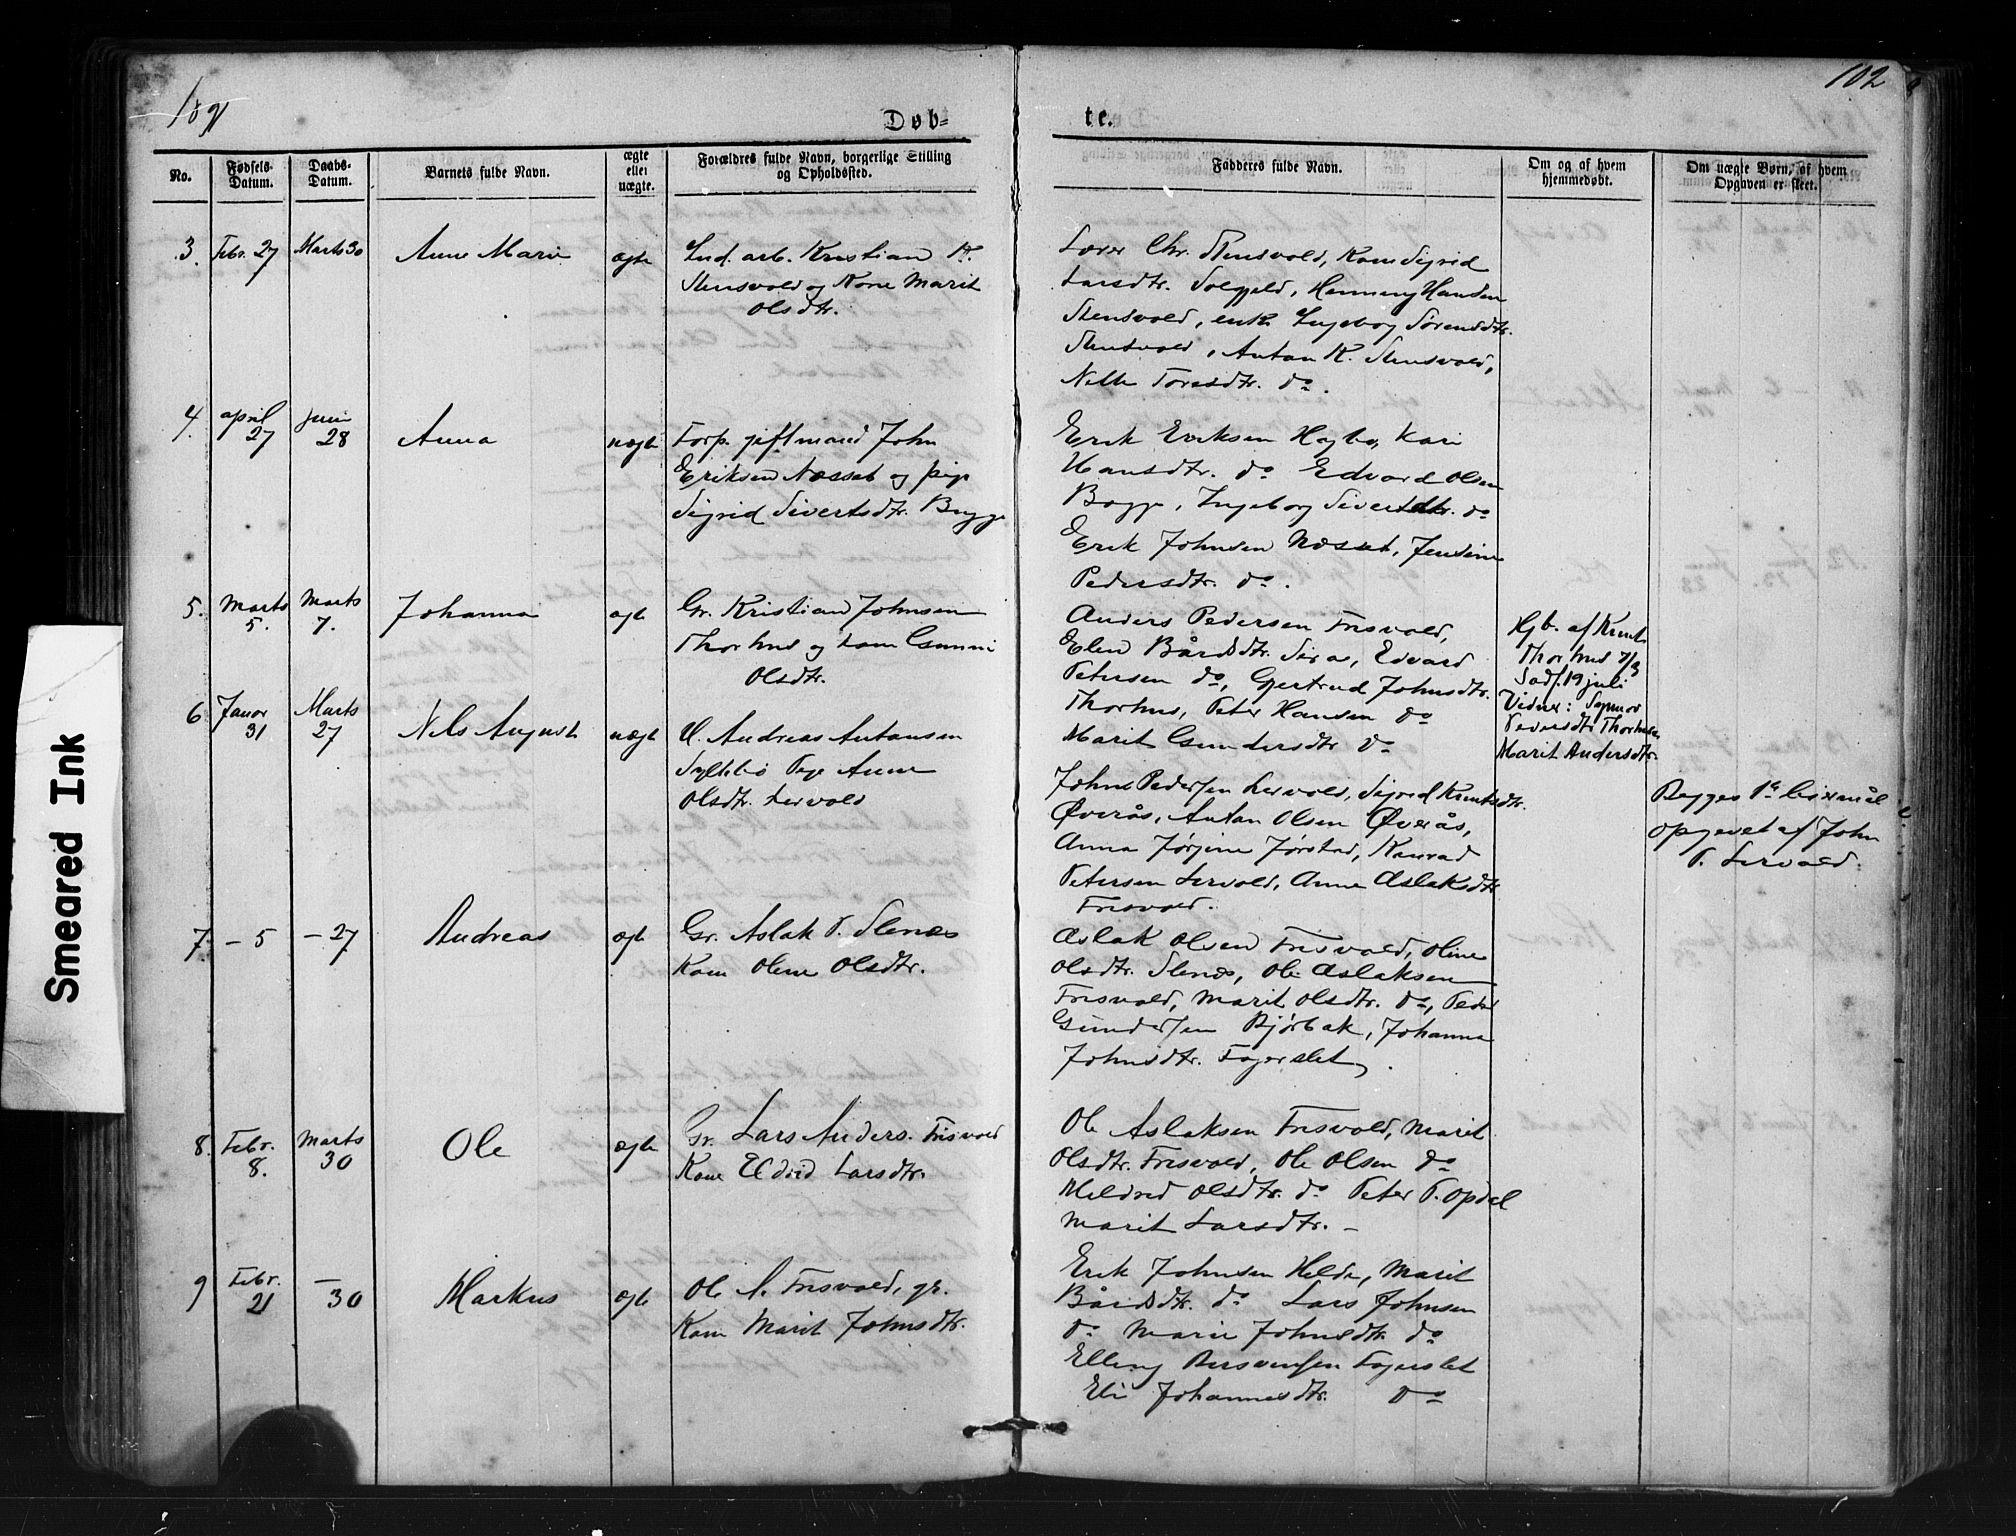 1891
102
Døb=
te.
No.
Fødsels-
Datum.
Daabs-
Datum.
Barnets fulde Navn.
ægte
eller
uægte.
Forældres fulde Navn, borgerlige Stilling
og Opholdssted.
Fadderes fulde Navn.
Om og af hvem
hjemmedøbt.
Om uægte Børn, af hvem
Opgaven er skeet.
3. Febr. 27 Marts 30 Anne Marie ægte Ind. arb. Kristian K.
Stensvold og Kone Marit
Olsdtr.
Lærer Chr. Stensvold, Kone Sigrid
Larsdtr. Solgjeld, Henning Hansen
Stensvold, enke Ingebog Sørensdtr.
Stensvold, Antan K. Stensvold,
Nelle Toresdtr. do.
4. april 27 Juni 28 Anna uægte Forp. giftmand John
Eriksen Næsset og pige
Sigrid Sivertsdtr. Bugge
Erik Eriksen Hagbø, Kari
Hansdtr. do Edvard Olsen
Bogge, Ingeborg Sivertsdtr. do
Erik Johnsen Næsset, Jensine
Pedersdtr. do.
5. Marts 5. Marts 7. Johanna ægte Gr. Kristian Johnsen
Thorhus og kone Gunni
Olsdtr.
Anders Pedersen Frisvold,
Elen Bårdsdtr. Sira, Edvard
Petersen do, Gjertrud Johnsdtr.
Thorhus, Peter Hansen do
Marit Gundersdtr do
Hjb. af Knut
Thorhus 7/3
Sadf. 19 juli
Vidner:
Pedersdtr Thorhus
Marit Andersdtr.
6 Januar 31 Marts 27 Nels August uægte U. Andreas Antonsen
Syltebø Pige Anne
Olsdtr. Lervold
John Pedersen Lervold, Sigrid Knutsdtr.
Øverås, Antan Olsen Øverås,
Anna Jørgine Jørstad, Konrad
Petersen Lervold, Anne Aslaksdtr
Frisvold.
Begges 1ste leiermål
opgevet af John
P. Lervold.
7. - 5 - 27 Andreas ægte Gr. Aslak P. Stenæs
Kone Oline Olsdtr.
Aslak Olsen Frisvold, Oline
Olsdtr. Stenæs, Ole Aslaksen
Frisvold, Marit Olsdtr. do, Peder
Gundersen Bjørbak, Johanna
Johnsdtr. Fagerslet
8. Febr. 8. Marts 30 Ole ægte Gr. Lars Anders. Frisvold
Kone Eldrid Larsdtr.
Ole Aslaksen Frisvold, Marit
Olsdtr. Frisvold, Ole Olsen do
Mildrid Olsdtr. do Peter P. Opdøl
Marit Larsdtr. -
9 Febr. 21 - 30 Markus ægte Ole A. Frisvold, gr.
Kone Marit Johnsdtr.
Erik Johnsen Helde, Marit
Bårdsdtr. do Lars Johnsen
do Marie Johnsdtr. do
Elling Bersvensen Fagerslet
Eli Johannesdtr. do
Smeared Ink